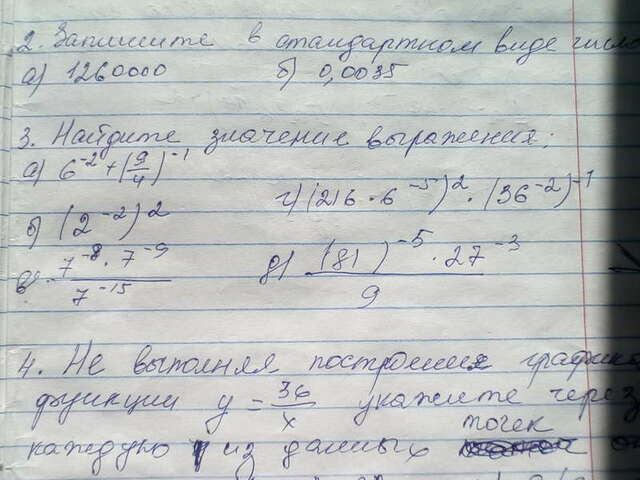 2. Запишите в стандартном виде число
а) 1260000 б) 0,0035
3. Найдите значение выражения:
а) 6⁻² + (9/4)⁻¹
г) (216 · 6⁻⁵)² · (36⁻²)⁻¹
б) (2⁻²)²
в) (7⁻⁸ · 7⁻⁹)/7⁻¹⁵ д) ((81)⁻⁵ · 27⁻³)/9
4. Не выполняя построения графика
функции y = 36/x укажите через
каждую из данных точек